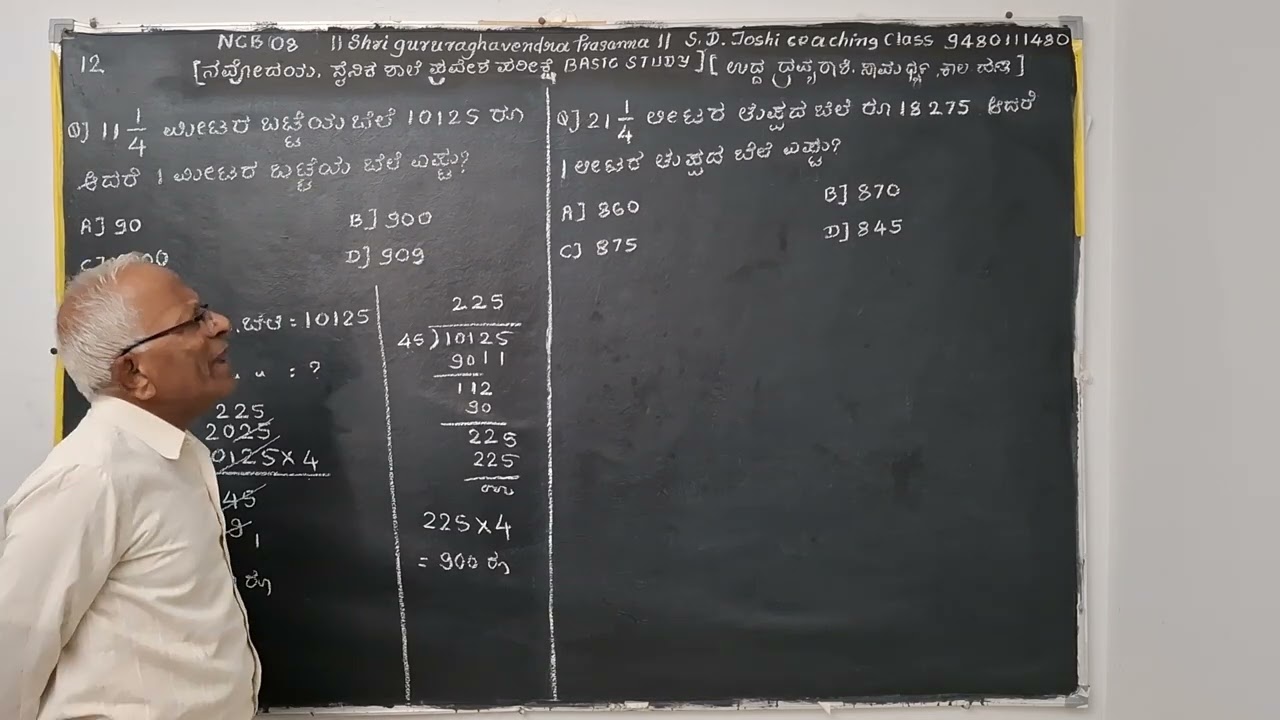 NCB 08 || Shri gururaghavendra Prasanna || S. D. Joshi coaching Class 9480111480
12
[ನವೋದಯ, ಸೈನಿಕ ಶಾಲೆ ಪ್ರವೇಶ ಪರೀಕ್ಷೆ BASIC STUDY] [ ಉದ್ದ ದ್ರವ್ಯರಾಶಿ, ಸಾಮರ್ಥ್ಯ, ಕಾಲ ಹಣ ]
Q] 11 1/4 ಮೀಟರ ಬಟ್ಟೆಯ ಬೆಲೆ 10125 ರೂ
ಆದರೆ 1 ಮೀಟರ ಬಟ್ಟೆಯ ಬೆಲೆ ಎಷ್ಟು?
A] 90 B] 900
C] 00 D] 909
.ಬೆಲೆ = 10125
" " : ?
225
2025
0125 × 4
45
9
1
ರೂ
225
45 ) 10125
90
112
90
225
225
225 × 4
= 900 ರೂ
Q] 21 1/4 ಲೀಟರ ತುಪ್ಪದ ಬೆಲೆ ರೂ 18275 ಆದರೆ
1 ಲೀಟರ ತುಪ್ಪದ ಬೆಲೆ ಎಷ್ಟು?
A] 860 B] 870
C] 875 D] 845